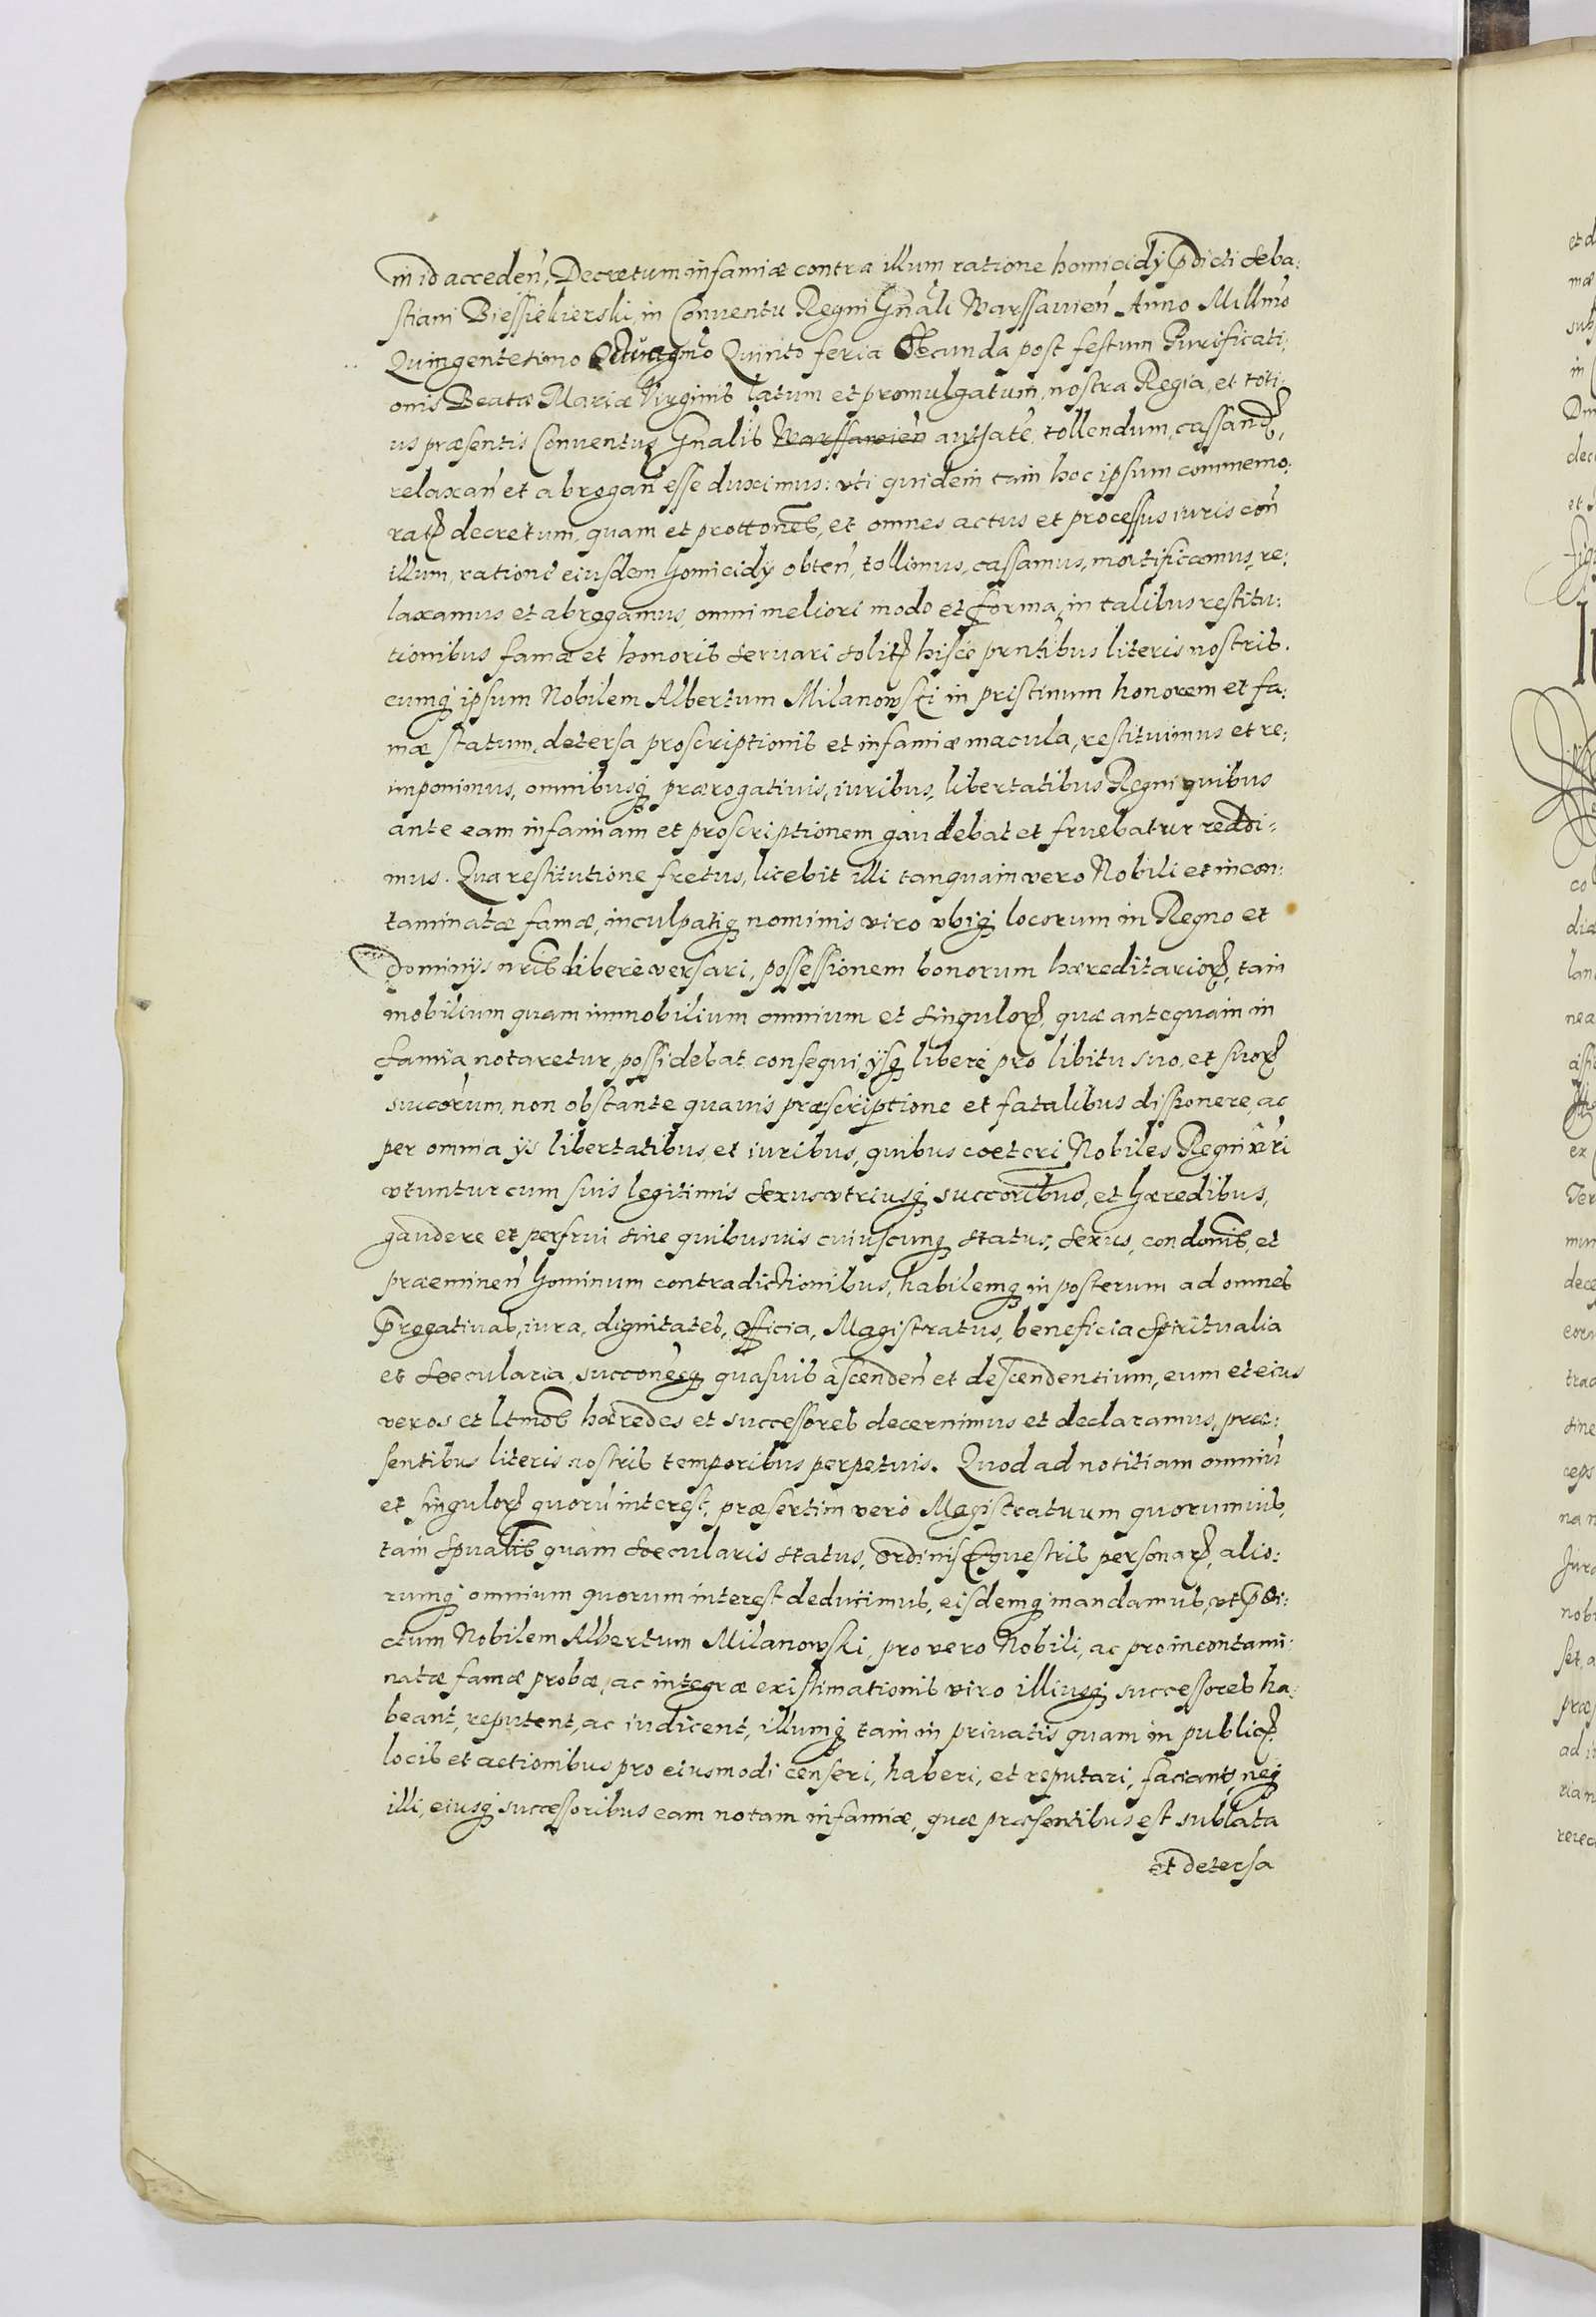 in id acceden̄, Decretum infamiæ contra illum ratione homicidij p̄dicti Seba:
stiani Biessiekierski, in Conventu Regni Gn̄ali Warssavien̄ Anno Millmo
Quingentesimo Quinto feria Secunda post festum Purificati:
onis Beatæ Mariæ Virginis latum et promulgatum, nostra Regia, et toti:
us præsentis Conventus Gn̄alis Warssavien̄ authate, tollendum, cassand,
relaxan̄ et abrogan̄ esse duximus: uti quidem tam hoc ipsum commemo:
rat decretum, quam et prottones, et omnes actus et processus iuris con̄
illum, ratione eiusdem homicidij obten̄, tollimus, cassamus, mortificamus, re:
laxamus et abrogamus, omni meliori modo et forma, in talibus restitu:
tionibus famæ et honoris servari solit hisce pn̄tibus literis nostris.
eumq ipsum Nobilem Albertum Milanowski in pristinum honorem et fa:
mæ statum, detersa proscriptionis et infamiæ macula, restituimus et re:
imponimus, omnibusq prærogativis, iuribus, libertatibus Regni quibus
ante eam infamiam et proscriptionem gaudebat et fruebatur reddi:
mus. Qua restitutione fretus, licebit illi tanquam vero Nobili et incon:
taminatæ famæ, inculpatiq nominis viro ubiq locorum in Regno et
Dominijs nr̄is libere versari, possessionem bonorum hæreditarior, tam
mobilium quam immobilium omnium et singulor, quæ antequam in
famia notaretur, possidebat consequi, ijsq libere pro libitu suo, et suor
succorum, non obstante quavis præscriptione et fatalibus disponere, ac
per omnia ijs libertatibus et iuribus, quibus cœteri Nobiles Regni nr̄i
utuntur cum suis legitimis sexus utriusq succoribus, et hæredibus,
gaudere et perfrui sine quibusvis cuiuscunq status, sexus, condonis, et
præeminen̄ hominum contradictionibus, habilemq in posterum ad omnes
p̄rogativas, iura, dignitates, officia, Magistratus, beneficia Spiritualia
et Sœcularia, succonesq quasvis ascenden̄ et descendentium, eum et eius
veros et ltmos hæredes et successores decernimus et declaramus, præ:
sentibus literis nostris temporibus perpetuis. Quod ad notitiam omniū
et singulor quorū interest, præsertim vero Magistratuum quorumvis,
tam Spualis quam Sœcularis status, ordinis Equestris personar, alio:
rumq omnium quorum interest deducimus, eisdemq mandamus, ut p̄di:
ctum Nobilem Albertum Milanowski, pro vero Nobili, ac pro incontami:
natæ famæ probæ, ac integræ existimationis viro illiusq successores ha:
beant, reputent, ac iudicent, illumq tam in privatis quam in public
locis et actionibus pro eiusmodi censeri, haberi, et reputari, faciant, neq
illi, eiusq successoribus eam notam infamiæ, quæ præsentibus est sublata
et detersa